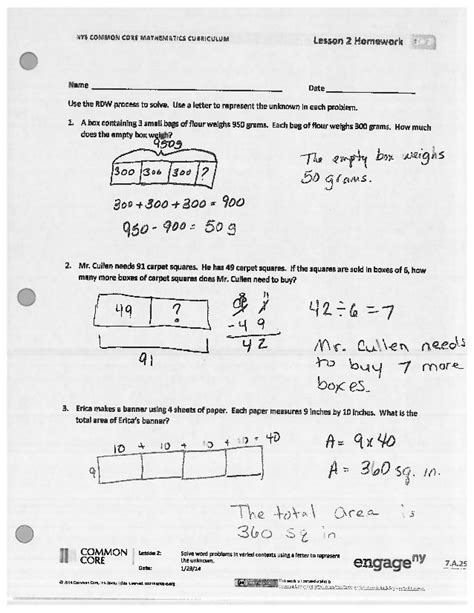 NYS COMMON CORE MATHEMATICS CURRICULUM
Lesson 2 Homework
Name
Date
Use the RDW process to solve. Use a letter to represent the unknown in each problem.
1. A box containing 3 small bags of flour weighs 950 grams. Each bag of flour weighs 300 grams. How much
does the empty box weigh?
950g
300 300 300 ?
300 + 300 + 300 = 900
950 - 900 = 50 g
The empty box weighs
50 grams.
2. Mr. Cullen needs 91 carpet squares. He has 49 carpet squares. If the squares are sold in boxes of 6, how
many more boxes of carpet squares does Mr. Cullen need to buy?
49 ?
91
8 11
9 1
- 4 9
4 2
42 ÷ 6 = 7
Mr. Cullen needs
to buy 7 more
boxes.
3. Erica makes a banner using 4 sheets of paper. Each paper measures 9 inches by 10 inches. What is the
total area of Erica's banner?
10 + 10 + 10 + 10 = 40
9
A = 9 x 40
A = 360 sq. in.
The total area is
360 sq in
COMMON
CORE
Lesson 2:
Solve word problems in varied contexts using a letter to represent
the unknown.
Date:
1/29/14
engage ny
7.A.25